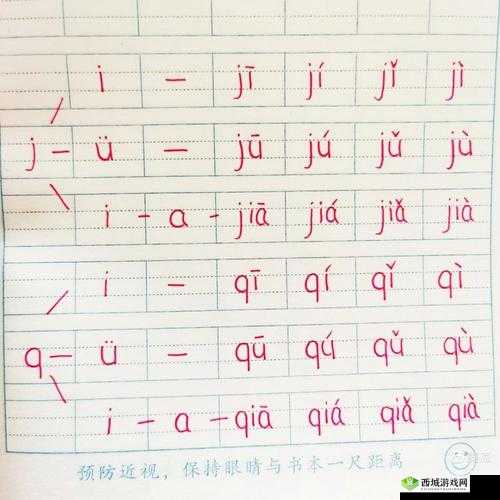 i — jī jí jǐ jì
j — ü — jū jú jǔ jù
i - a - jiā jiá jiǎ jià
i — qī qí qǐ qì
q — ü — qū qú qǔ qù
i - a - qiā qiá qiǎ qià
预防近视，保持眼睛与书本一尺距离
西城游戏网